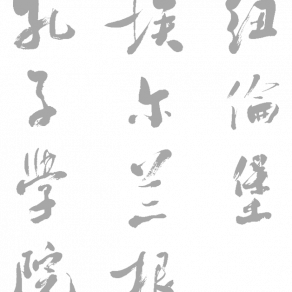 纽倫堡
埃尔兰根
孔子學院